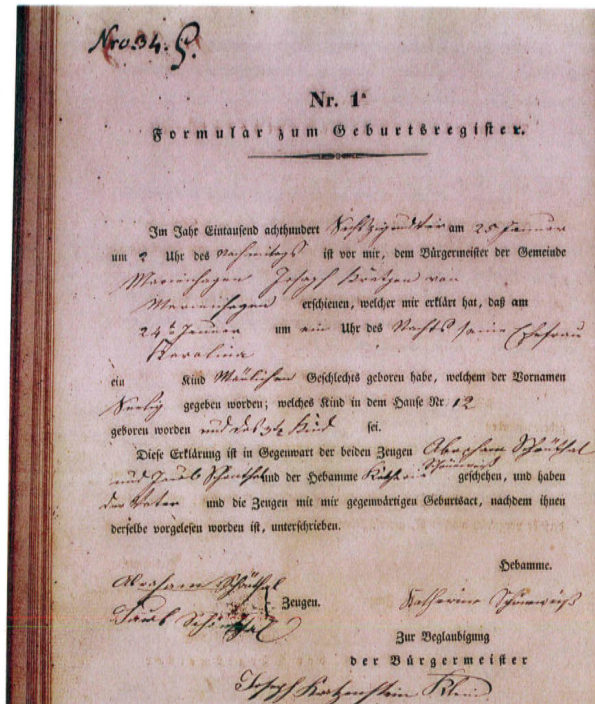 Nro. 34.
Nr. 1a
Formular zum Geburtsregister.
Im Jahr Eintausend achthundert am 25 Januar
um 2 Uhr des Nachmitags ist vor mir, dem Bürgermeister der Gemeinde
Marienhagen Joseph von
Marienhagen erschienen, welcher mir erklärt hat, daß am
24t Januar um ein Uhr des Nachts seine Ehefrau
Karolina
ein Kind Mänlichen Geschlechts geboren habe, welchem der Vornamen
Seelig gegeben worden; welches Kind in dem Hause Nr. 12
geboren worden und das 3te Kind sei.
Diese Erklärung ist in Gegenwart der beiden Zeugen Abraham Schönthal
und Jacob Schönthal und der Hebamme geschehen, und haben
der Vater und die Zeugen mit mir gegenwärtigen Geburtsact, nachdem ihnen
derselbe vorgelesen worden ist, unterschrieben.
Hebamme.
Abraham Schönthal
Zeugen.
Katherine
Jacob Schönthal
Zur Beglaubigung
der Bürgermeister
Joseph Katzenstein Klein